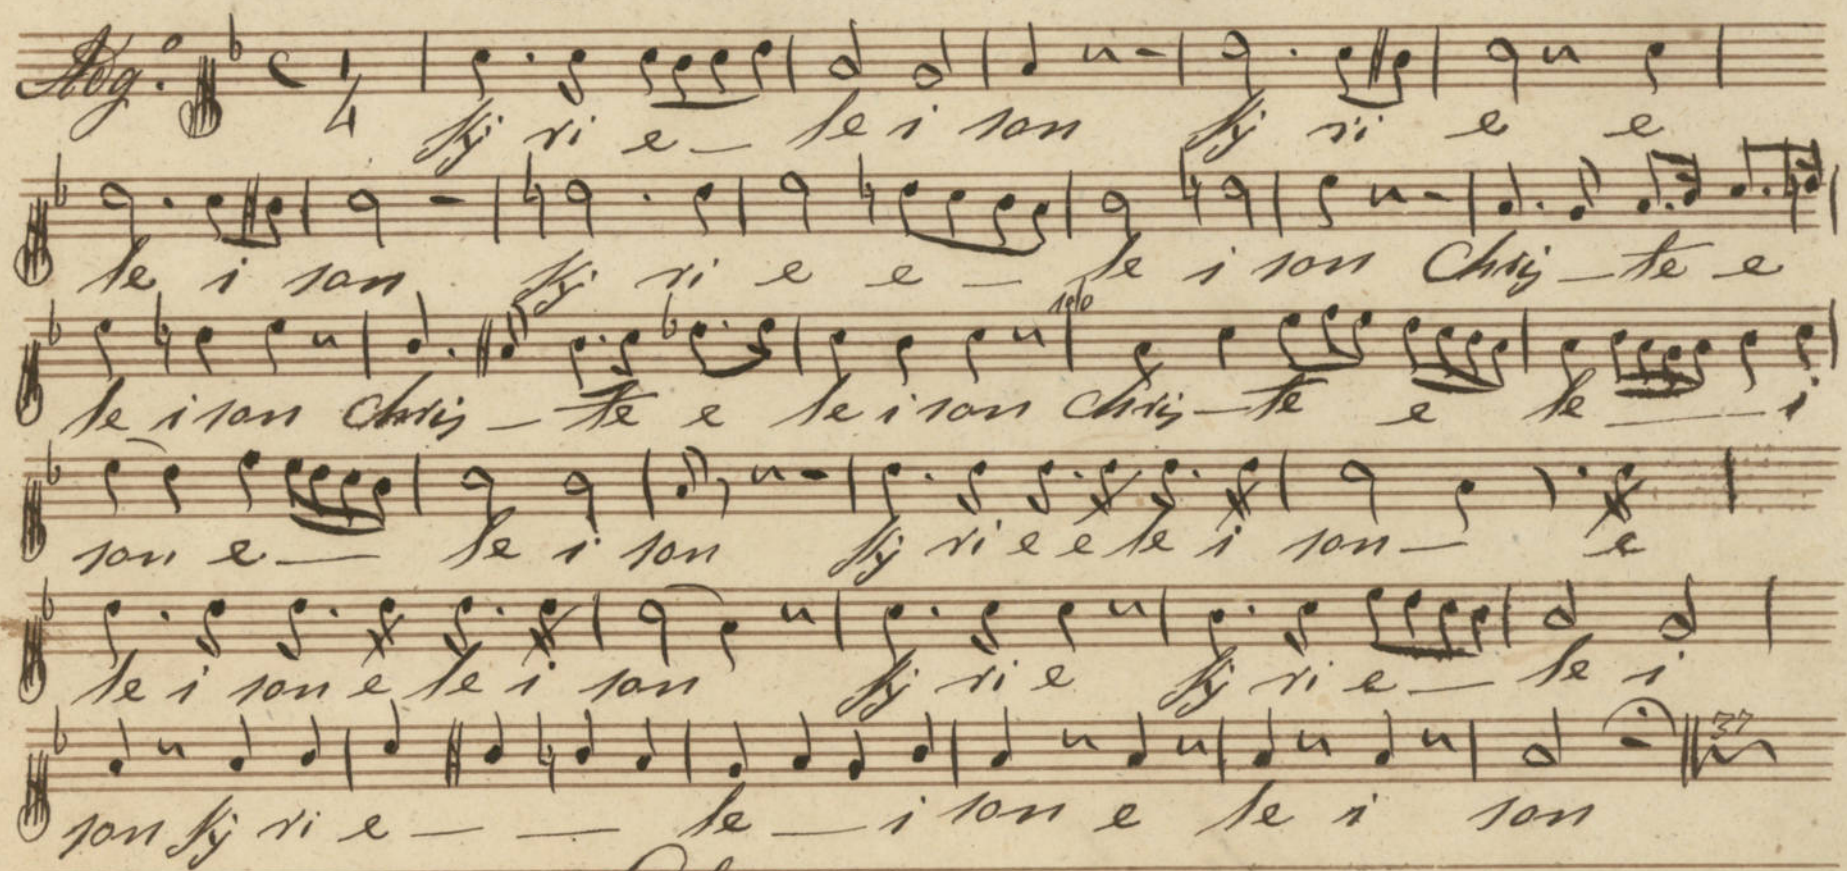 Adg.o C 4
Ky ri e — le i son Ky ri e e
le i son Ky ri e e — le i son Chris — te e
solo
le i son Chris — te e le i son Chris — te e le — i
son e — le i son Ky ri e e le i son — e
le i son e le i son Ky ri e Ky ri e — le i
37
son Ky ri e — — le — i son e le i son